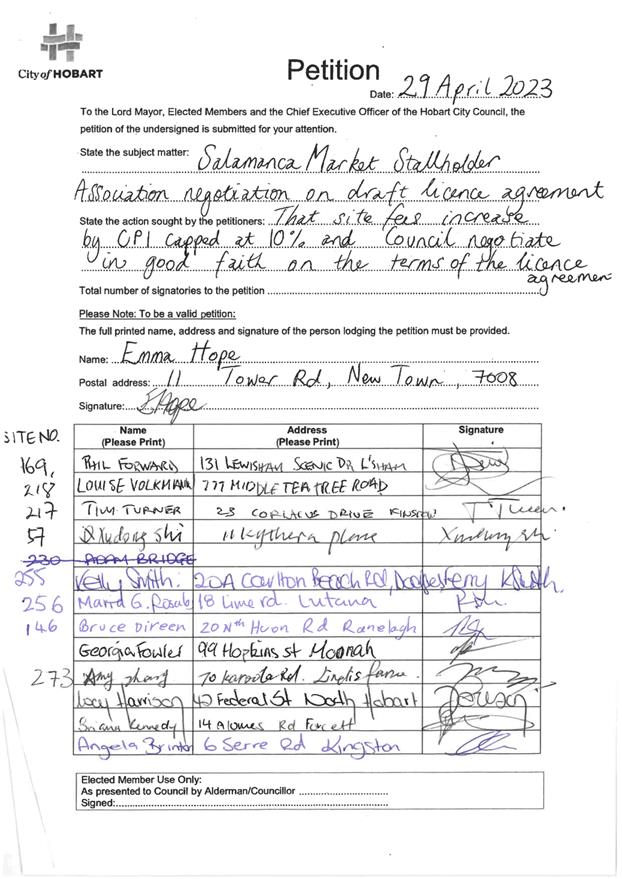 City of HOBART
Petition
Date: 29 April 2023
To the Lord Mayor, Elected Members and the Chief Executive Officer of the Hobart City Council, the
petition of the undersigned is submitted for your attention.
State the subject matter: Salamanca Market Stallholder
Association negotiation on draft licence agreement
State the action sought by the petitioners: That site fees increase
by CPI capped at 10% and Council negotiate
in good faith on the terms of the licence
agreemen
Total number of signatories to the petition
Please Note: To be a valid petition:
The full printed name, address and signature of the person lodging the petition must be provided.
Name: Emma Hope
Postal address: 11 Tower Rd, New Town, 7008
Signature: EHope
SITE NO. Name Address Signature
(Please Print) (Please Print)
169, PHIL FORWARD 131 LEWISHAM SCENIC DR L'SHAM
218 LOUISE VOLKMANN 777 MIDDLE TEA TREE ROAD
217 TIM TURNER 23 DRIVE
57 Xudong Shi 11 kythera place
230 ADAM BRIDGE
255 Kelly Smith. 20A Carlton Beach Rd,
256 G. 18 Lime rd. Lutana
146 Bruce Direen 20 Nth Huon Rd Ranelagh
Georgia Fowler 99 Hopkins st Moonah
273 Amy zhang 70 Rd.
Lucy Harrison 42 Federal St North Hobart
Briana Kennedy 14 Alomes Rd Forcett
Angela 6 Serre Rd Kingston
Elected Member Use Only:
As presented to Council by Alderman/Councillor
Signed: